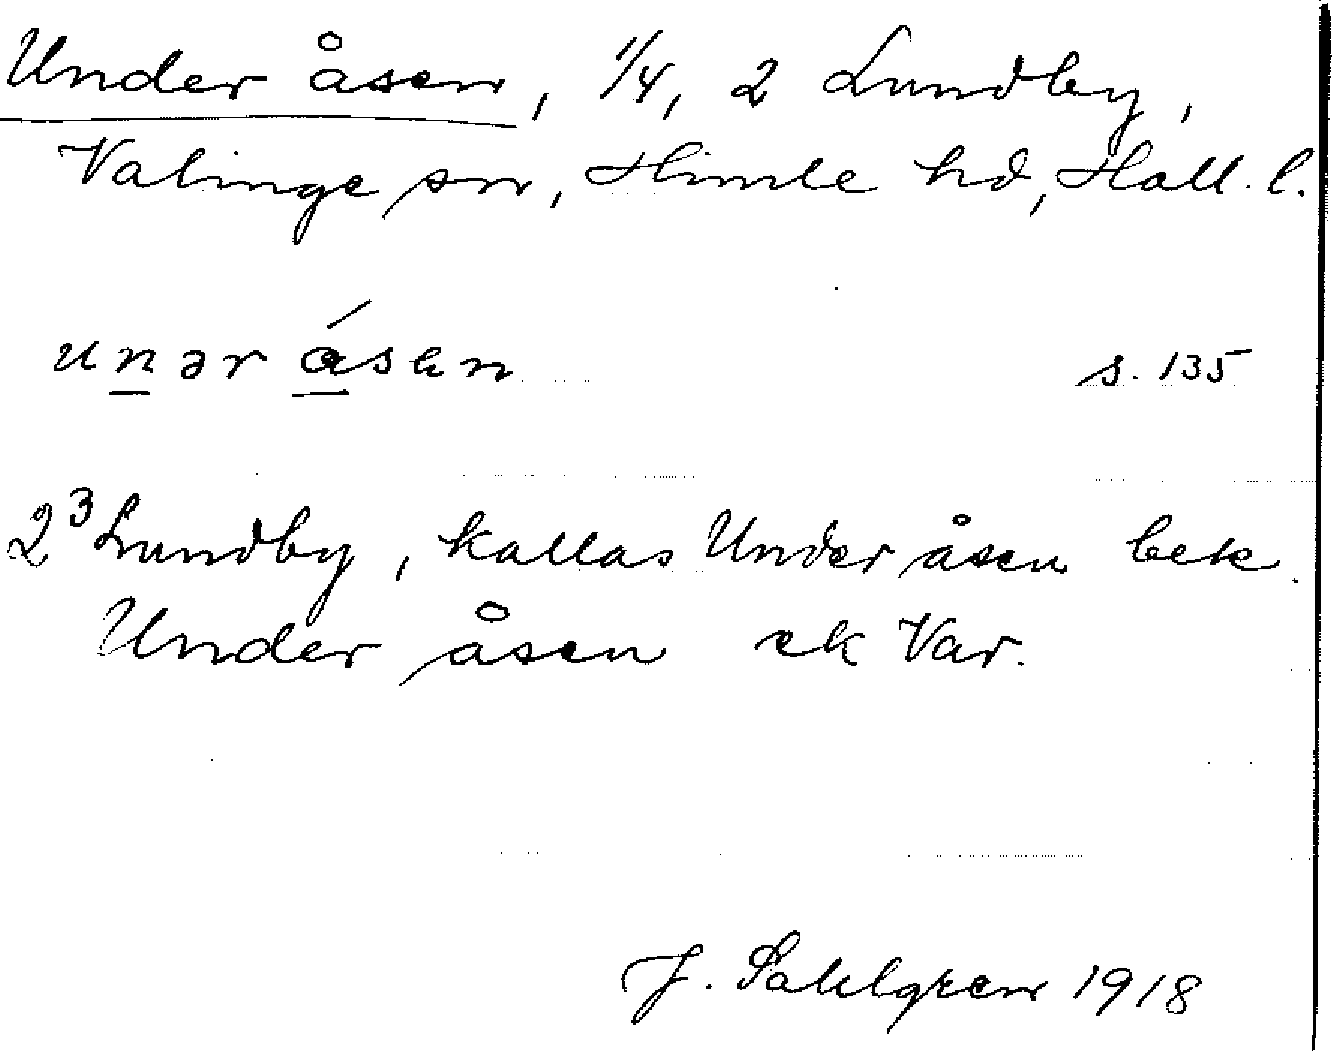 Under åsen, 1/4, 2 Lundby,
Valinge sn, Himle hd, Hall. l.
unər ásen s. 135
2³ Lundby, kallas Under åsen bek.
Under åsen ek Var.
J. Sahlgren 1918